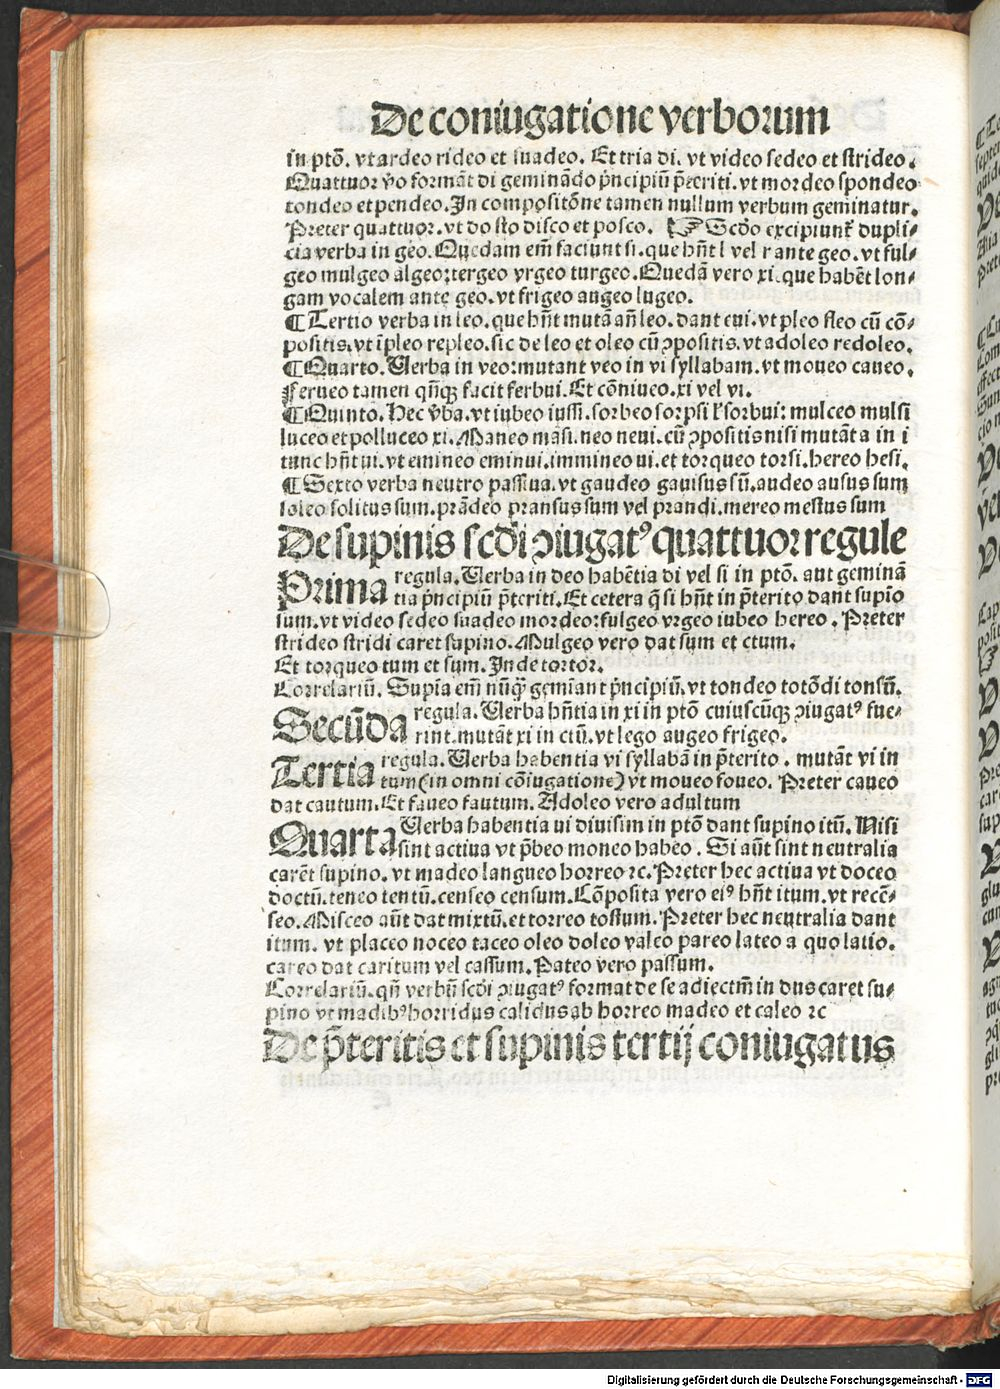 De coniugatione verborum
in ptō. vt ardeo rideo et suadeo. Et tria di. vt video sedeo et strideo.
Quattuor v̄o formāt di gemināndo p̄ncipiū p̄teriti. vt mordeo spondeo
tondeo et pendeo. In compositōne tamen nullum verbum geminatur.
Preter quattuor. vt do sto disco et posco. ☞ Scd̄o excipiunt᷑ dupli⸗
cia verba in geo. Quedam em̄ faciunt si. que hn̄t l vel r ante geo. vt ful⸗
geo mulgeo algeo: tergeo vrgeo turgeo. Quedā vero xi. que habēt lon⸗
gam vocalem ante geo. vt frigeo augeo lugeo.
¶ Tertio verba in leo. que hn̄t mutā an̄ leo. dant eui. vt pleo fleo cū cō⸗
positis. vt īpleo repleo. sic de leo et oleo cū ↄpositis. vt adoleo redoleo.
¶ Quarto. Verba in veo: mutant veo in vi syllabam. vt moueo caueo.
Ferueo tamen qn̄qꝫ facit ferbui. Et cōniueo. xi vel vi.
¶ Quinto. Hec v̄ba. vt iubeo iussi. sorbeo sorpsi l᷑ sorbui: mulceo mulsi
luceo et polluceo xi. Maneo māsi. neo neui. cū ↄpositis nisi mutāt a in i
tunc hn̄t ui. vt emineo eminui. immineo ui. et torqueo torsi. hereo hesi.
¶ Sexto verba neutro passiua. vt gaudeo gauisus sū. audeo ausus sum
soleo solitus sum. prādeo pransus sum vel prandi. mereo mestus sum
De supinis scd̄i ↄiugatꝰ quattuor regule
Prima regula. Verba in deo habētia di vel si in ptō. aut geminā
tia p̄ncipiū p̄teriti. Et cetera q̄ si hn̄t in p̄terito dant supino
sum. vt video sedeo suadeo mordeo: fulgeo vrgeo iubeo hereo. Preter
strideo stridi caret supino. Mulgeo vero dat sum et ctum.
Et torqueo tum et sum. Inde tortor.
Correlariū. Supīa em̄ nūq̄ gemīant p̄ncipiū. vt tondeo totōdi tonsū.
Secūda regula. Verba hn̄tia in xi in ptō cuiuscūqꝫ ↄiugatꝰ fue⸗
rint. mutāt xi in ctū. vt lego augeo frigeo.
Tertia regula. Verba habentia vi syllabā in p̄terito. mutāt vi in
tum (in omni cōiugatione) vt moueo foueo. Preter caueo
dat cautum. Et faueo fautum. Adoleo vero adultum
Quarta Verba habentia ui diuisim in ptō dant supino itū. Nisi
sint actiua vt p̄beo moneo habeo. Si aūt sint neutralia
carēt supino. vt madeo langueo horreo ⁊c. Preter hec actiua vt doceo
doctū. teneo tentū. censeo censum. Cōposita vero eiꝰ hn̄t itum. vt recē⸗
seo. Misceo aūt dat mixtū. et torreo tostum. Preter hec neutralia dant
itum. vt placeo noceo taceo oleo doleo valeo pareo lateo a quo latio.
careo dat caritum vel cassum. Pateo vero passum.
Correlariū. qn̄ verbū scd̄i ↄiugatꝰ format de se adiectm̄ in dus caret su⸗
pino vt madibꝰ horridus calidus ab horreo madeo et caleo ⁊c
De p̄teritis et supinis tertij coniugatus
Digitalisierung gefördert durch die Deutsche Forschungsgemeinschaft - DFG